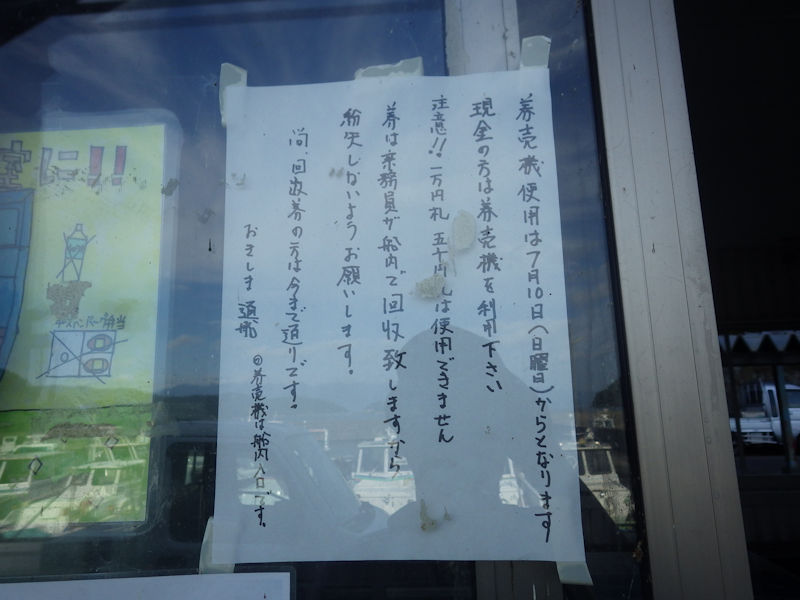 券売機使用は7月10日(日曜日)からとなります
現金の方は券売機を利用下さい
注意!!一万円札 五千円札は使用できません
券は乗務員が船内で回収致しますから
紛失しないようお願いします。
尚、回数券の方は今まで通りです。
おきしま通船
券売機は船内入口です。
室に!!
弁当